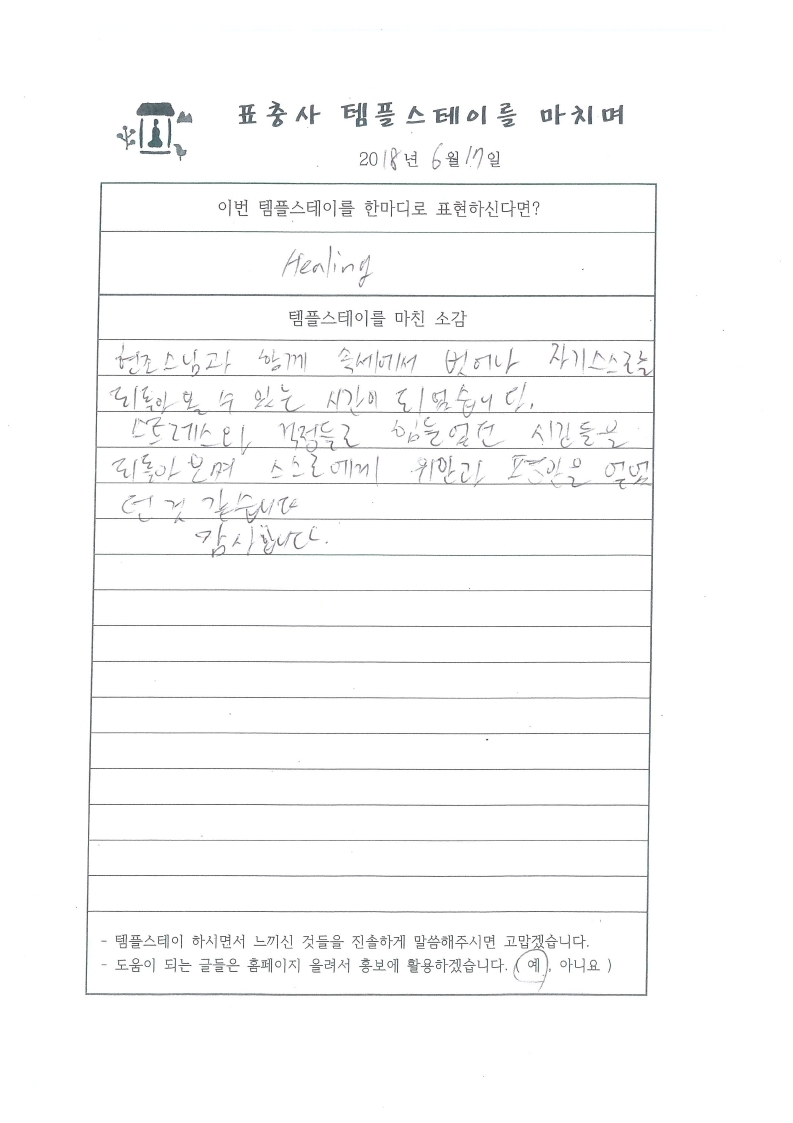 표충사 템플스테이를 마치며
2018년 6월 17일
이번 템플스테이를 한마디로 표현하신다면?
Healing
템플스테이를 마친 소감
현조스님과 함께 속세에서 벗어나 자기스스로를
되돌아 볼 수 있는 시간이 되었습니다.
스트레스와 걱정들로 힘들었던 시간들을
되돌아보며 스스로에게 위안과 편안을 얻었
던 것 같습니다
감사합니다.
- 템플스테이 하시면서 느끼신 것들을 진솔하게 말씀해주시면 고맙겠습니다.
- 도움이 되는 글들은 홈페이지 올려서 홍보에 활용하겠습니다. ( 예 , 아니요 )